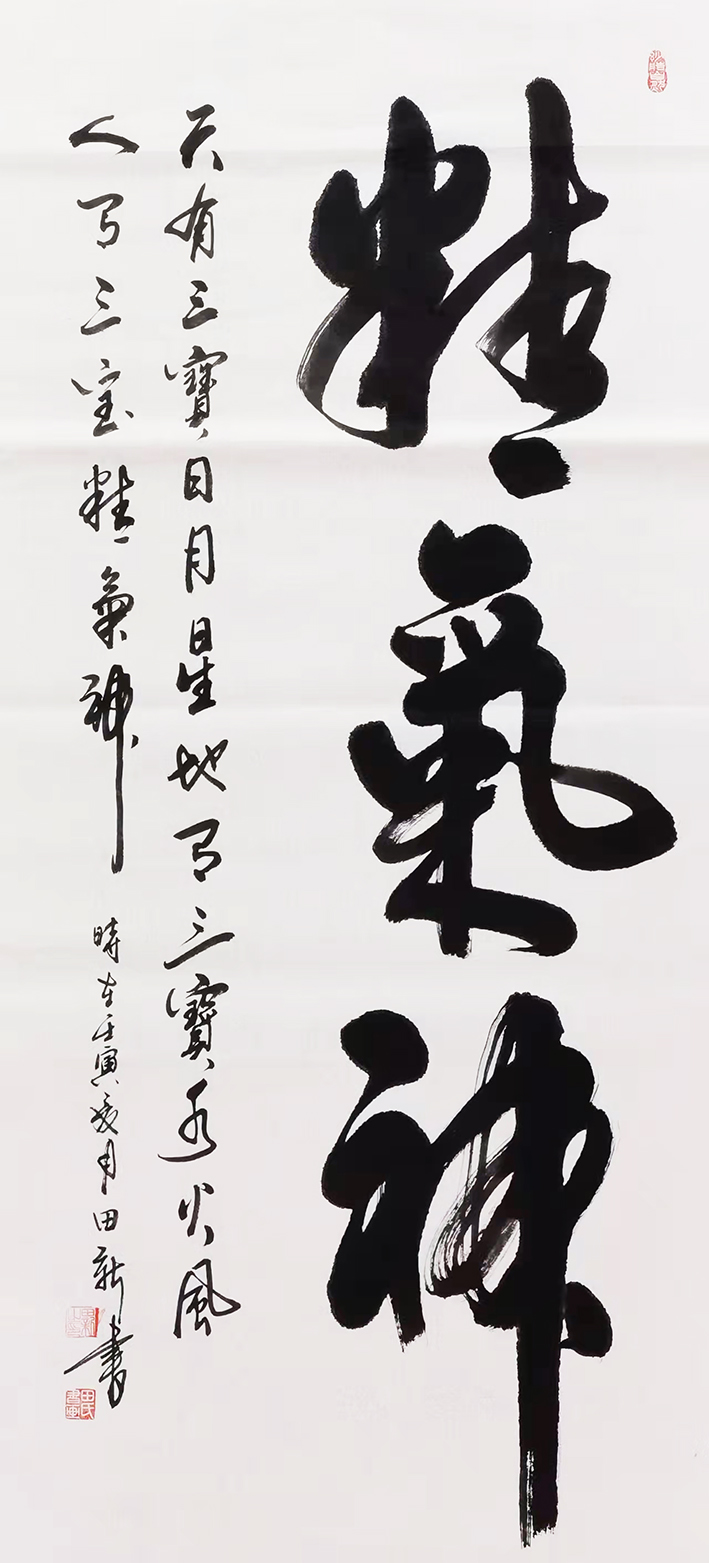 精氣神
天有三寶日月星地有三寶水火風
人有三宝精氣神
時在壬寅夏月田新書
田氏書画